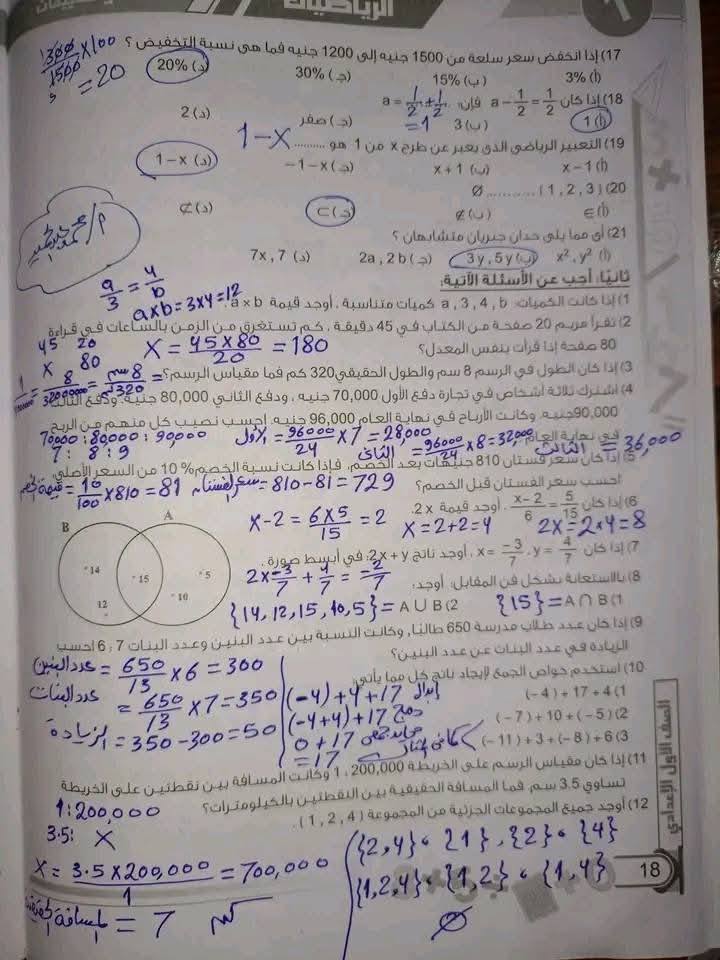 الرياضيات
17) إذا انخفض سعر سلعة من 1500 جنيه إلى 1200 جنيه فما هي نسبة التخفيض ؟
(أ) 3% (ب) 15% (ج) 30% (د) 20%
300/1500 × 100
= 20
18) إذا كان a − 1/2 = 1/2 فإن: a = 1/2 + 1/2
= 1
(أ) 1 (ب) 3 (ج) صفر (د) 2
19) التعبير الرياضي الذي يعبر عن طرح x من 1 هو .......... 1 − x
(أ) x − 1 (ب) x + 1 (ج) −1 − x (د) 1 − x
20) Ø ........... {1 , 2 , 3}
(أ) ∈ (ب) ∉ (ج) ⊂ (د) ⊄
21) أي مما يلي حدان جبريان متشابهان ؟
(أ) x² , y² (ب) 3y , 5y (ج) 2a , 2b (د) 7x , 7
ثانيًا: أجب عن الأسئلة الآتية:
a/3 = 4/b
a×b = 3×4 = 12
1) إذا كانت الكميات: a , 3 , 4 , b كميات متناسبة ، أوجد قيمة a × b .
2) تقرأ مريم 20 صفحة من الكتاب في 45 دقيقة ، كم تستغرق من الزمن بالساعات في قراءة
80 صفحة إذا قرأت بنفس المعدل؟
45 20
x 80
X = 45×80/20 = 180
3) إذا كان الطول في الرسم 8 سم والطول الحقيقي 320 كم فما مقياس الرسم؟
= 8سم/320كم = 8/32000000 =
4) اشترك ثلاثة أشخاص في تجارة دفع الأول 70,000 جنيه ، ودفع الثاني 80,000 جنيه، ودفع الثالث
90,000جنيه، وكانت الأرباح في نهاية العام 96,000 جنيه. احسب نصيب كل منهم من الربح
في نهاية العام.
70000 : 80000 : 90,000
7 : 8 : 9
الأول = 96000/24 × 7 = 28,000
الثاني = 96000/24 × 8 = 32,000
الثالث = 36,000
5) إذا كان سعر فستان 810 جنيهات بعد الخصم، فإذا كانت نسبة الخصم 10 % من السعر الأصلي
احسب سعر الفستان قبل الخصم؟
قيمة الخصم = 10/100 × 810 = 81
سعر الفستان = 810 − 81 = 729
6) إذا كان x − 2/6 = 5/15 ، أوجد قيمة 2x.
x − 2 = 6×5/15 = 2 x = 2+2 = 4 2x = 2×4 = 8
7) إذا كان x = −3/7 , y = 4/7 ، أوجد ناتج 2x + y، في أبسط صورة .
2×−3/7 + 4/7 = −2/7
8) بالاستعانة بشكل فن المقابل: أوجد:
1) A ∩ B = {15} 2) A ∪ B = {14,12,15,10,5}
B A
14 15 5
12 10
9) إذا كان عدد طلاب مدرسة 650 طالبًا، وكانت النسبة بين عدد البنين وعدد البنات 7 : 6 احسب
الزيادة في عدد البنات عن عدد البنين؟
عدد البنين = 650/13 × 6 = 300
عدد البنات = 650/13 × 7 = 350
الزيادة = 350 − 300 = 50
10) استخدم خواص الجمع لإيجاد ناتج كل مما يأتي:
1) (−4) + 17 + 4
2) (−7) + 10 + (−5)
3) (−11) + 3 + (−8) + 6
(−4) + 4 + 17 إبدال
(−4+4) + 17 دمج
0 + 17
= 17
11) إذا كان مقياس الرسم على الخريطة 200,000 : 1 وكانت المسافة بين نقطتين على الخريطة
تساوي 3.5 سم، فما المسافة الحقيقية بين النقطتين بالكيلومترات؟
1:200,000
3.5: X
X = 3.5×200,000/1 = 700,000
المسافة الحقيقية = 7 كم
12) أوجد جميع المجموعات الجزئية من المجموعة {1 , 2 , 4} .
{2,4} ، {1} ، {2} ، {4}
{1,2,4} ، {1,2} ، {1,4}
Ø
الصف الأول الإعدادي
18